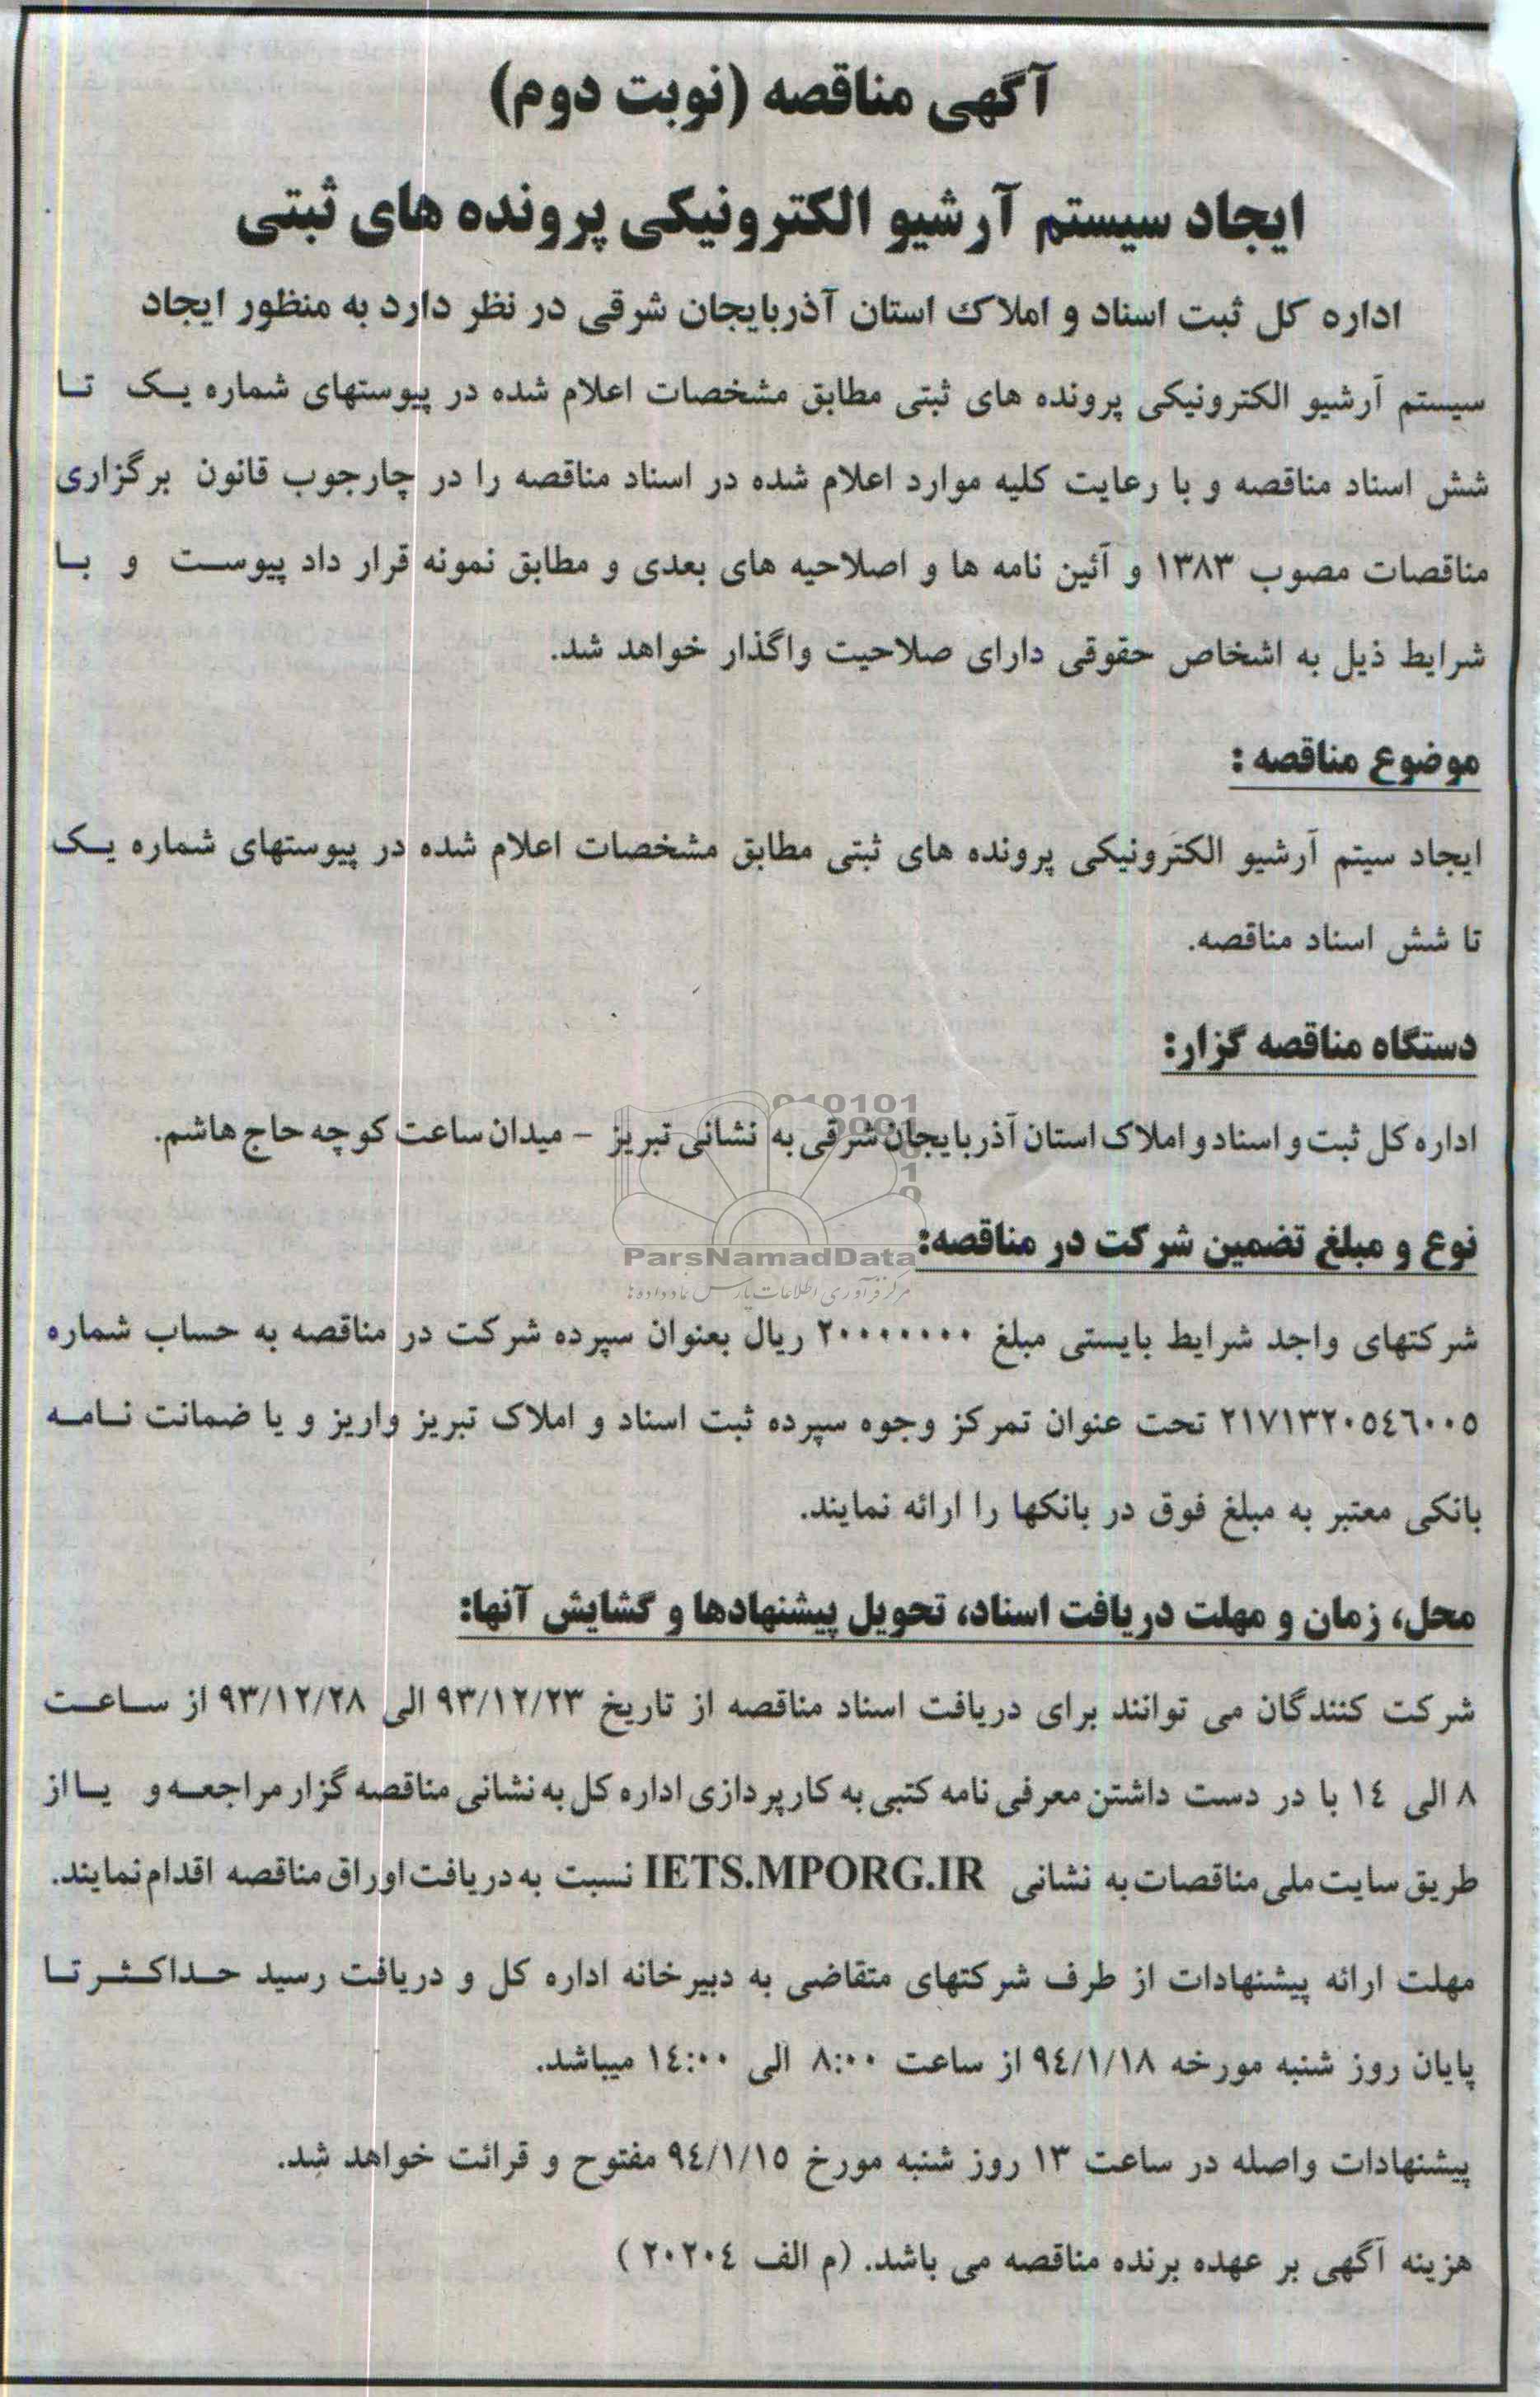 آگهی مناقصه (نوبت دوم)
ایجاد سیستم آرشیو الکترونیکی پرونده های ثبتی
اداره کل ثبت اسناد و املاک استان آذربایجان شرقی در نظر دارد به منظور ایجاد
سیستم آرشیو الکترونیکی پرونده های ثبتی مطابق مشخصات اعلام شده در پیوستهای شماره یک تا
شش اسناد مناقصه و با رعایت کلیه موارد اعلام شده در اسناد مناقصه را در چارچوب قانون برگزاری
مناقصات مصوب ۱۳۸۳ و آئین نامه ها و اصلاحیه های بعدی و مطابق نمونه قرار داد پیوست و با
شرایط ذیل به اشخاص حقوقی دارای صلاحیت واگذار خواهد شد.
موضوع مناقصه :
ایجاد سیتم آرشیو الکترونیکی پرونده های ثبتی مطابق مشخصات اعلام شده در پیوستهای شماره یک
تا شش اسناد مناقصه.
دستگاه مناقصه گزار:
اداره کل ثبت و اسناد و املاک استان آذربایجان شرقی به نشانی تبریز – میدان ساعت کوچه حاج هاشم.
نوع و مبلغ تضمین شرکت در مناقصه:
ParsNamadData
مرکز فرآوری اطلاعات پارس نماد داده ها
شرکتهای واجد شرایط بایستی مبلغ ۲۰۰۰۰۰۰۰ ریال بعنوان سپرده شرکت در مناقصه به حساب شماره
۲۱۷۱۳۲۰۵٤٦۰۰۵ تحت عنوان تمرکز وجوه سپرده ثبت اسناد و املاک تبریز واریز و یا ضمانت نامه
بانکی معتبر به مبلغ فوق در بانکها را ارائه نمایند.
محل، زمان و مهلت دریافت اسناد، تحویل پیشنهادها و گشایش آنها:
شرکت کنندگان می توانند برای دریافت اسناد مناقصه از تاریخ ۹۳/۱۲/۲۳ الی ۹۳/۱۲/۲۸ از ساعت
۸ الی ۱٤ با در دست داشتن معرفی نامه کتبی به کارپردازی اداره کل به نشانی مناقصه گزار مراجعه و یا از
طریق سایت ملی مناقصات به نشانی IETS.MPORG.IR نسبت به دریافت اوراق مناقصه اقدام نمایند.
مهلت ارائه پیشنهادات از طرف شرکتهای متقاضی به دبیرخانه اداره کل و دریافت رسید حداکثر تا
پایان روز شنبه مورخه ۹٤/۱/۱۸ از ساعت ۸:۰۰ الی ۱٤:۰۰ میباشد.
پیشنهادات واصله در ساعت ۱۳ روز شنبه مورخ ۹٤/۱/۱۵ مفتوح و قرائت خواهد شد.
هزینه آگهی بر عهده برنده مناقصه می باشد. (م الف ۲۰۲۰٤ )